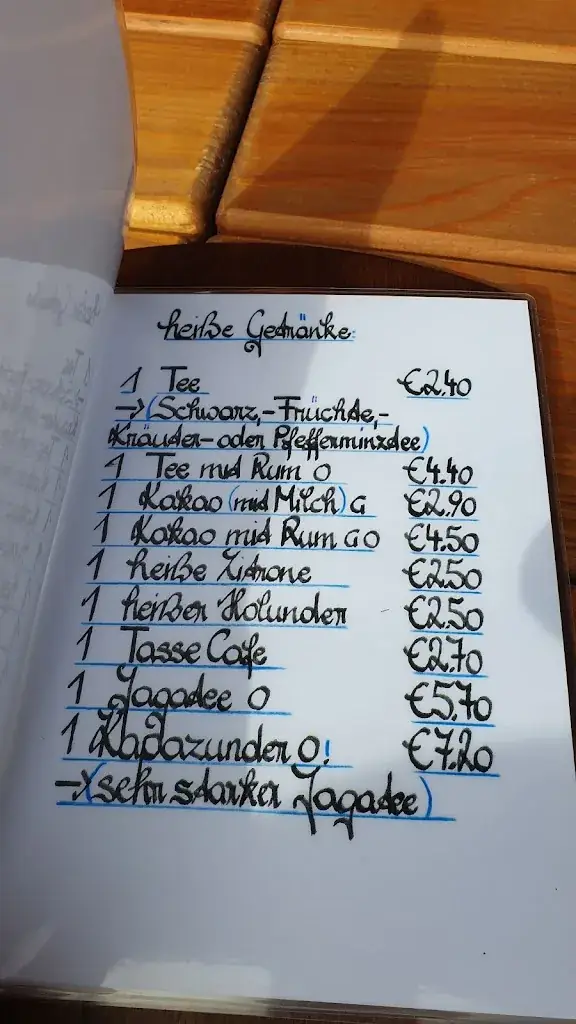 heiße Getränke:
1 Tee €2.40
→(Schwarz,-Früchte,-
Kräuter-oder Pfefferminztee)
1 Tee mit Rum O €4.40
1 Kakao (mit Milch) G €2.90
1 Kakao mit Rum G O €4.50
1 heiße Zitrone €2.50
1 heißer Holunder €2.50
1 Tasse Cafe €2.70
1 Jagatee O €5.70
1 Kapazunder O! €7.20
→(sehr starker Jagatee)